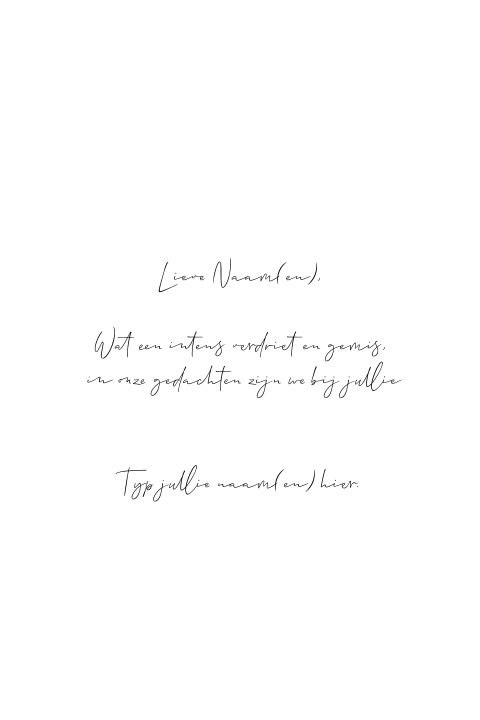 Lieve Naam(en),
Wat een intens verdriet en gemis,
in onze gedachten zijn we bij jullie
Typ jullie naam(en) hier.